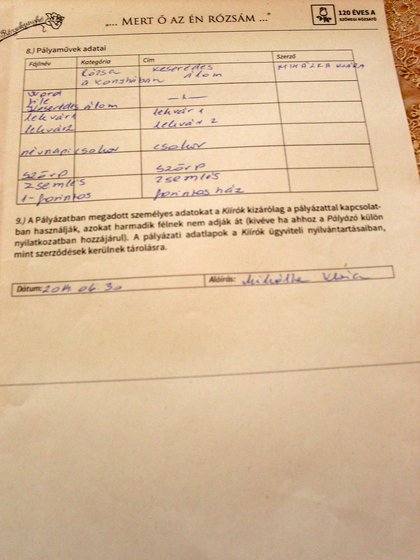 Rózsaünnep
„... MERT Ő AZ ÉN RÓZSÁM ..."
120 ÉVES A
SZŐREGI RÓZSATŐ
8.) Pályaművek adatai
Fájlnév Kategória Cím Szerző
Rózsa a konyhában keserédes álom MIHÁLKA KLÁRA
Word file
keserédes álom —„—
lekvár1 lekvár 1
lekvár2 lekvár 2
névnapi csokor csokor
szörp szörp
zsemlés zsemlés
1-forintos forintos ház
9.) A Pályázatban megadott személyes adatokat a Kiírók kizárólag a pályázattal kapcsolat-
ban használják, azokat harmadik félnek nem adják át (kivéve ha ahhoz a Pályázó külön
nyilatkozatban hozzájárul). A pályázati adatlapok a Kiírók ügyviteli nyilvántartásaiban,
mint szerződések kerülnek tárolásra.
Dátum: 2014 06. 30 Aláírás: Mihálka Klára